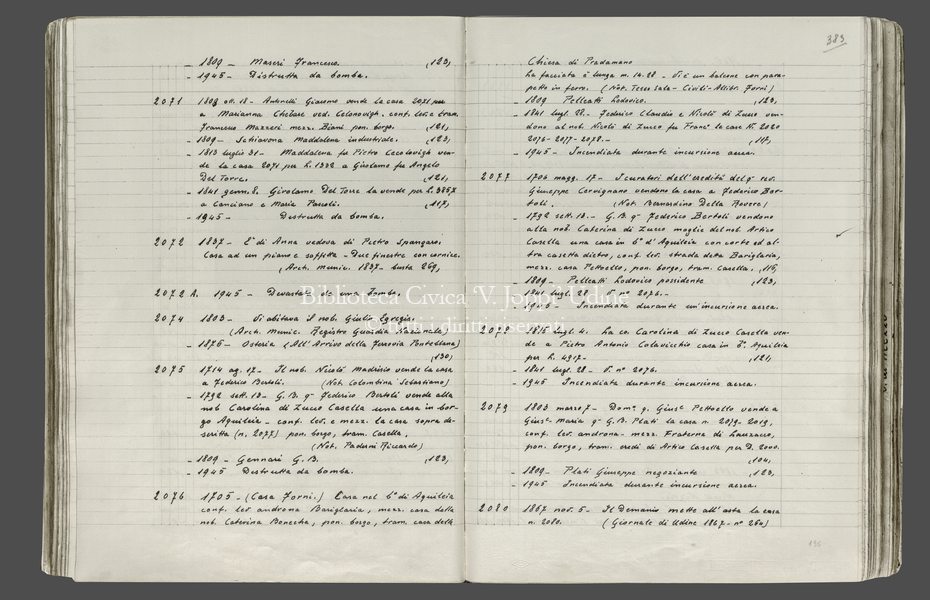 - 1809 - Maseri Francesco. (123)
- 1945 - Distrutta da bomba.
2071 1808 ott. 18 - Antonelli Giacomo vende la casa 2071 per
a Marianna Chelare ved. Celanovigh. conf. lev. a tram.
Francesco Mazzeri mezz. Biani pon. borgo. (121)
- 1809 - Schiavona Maddalena industriale. (123)
- 1813 luglio 31 - Maddalena fu Pietro Cecolavigh ven-
de la casa 2071 per L. 1332 a Girolamo fu Angelo
Del Torre. (121)
- 1841 genn. 8. Girolamo Del Torre la vende per L. 3857
a Canciano e Maria Paroli. (117)
- 1945 - Distrutta da bomba.
2072 1837 - E' di Anna vedova di Pietro Spangaro.
Casa ad un piano e soffitta - Due finestre con cornice.
(Arch. Munic. 1837 - busta 269)
2072 A. 1945 - Devastata da una bomba.
2074 1803 - Vi abitava il nob. Giulio Egregis.
(Arch. Munic. Registro Guardia Nazionale)
- 1876 - Osteria (All'Arrivo della Ferrovia Pontebbana)
(130)
2075 1714 ag. 17 - Il nob. Nicolò Madrisio vende la casa
a Federico Bertoli. (Not. Colombina Sebastiano)
- 1792 sett. 13 - G. B. qm Federico Bertoli vende alla
nob. Carolina di Zucco Casella una casa in bor-
go Aquileia - conf. lev. e mezz. la casa sopra de-
scritta (n. 2077) pon. borgo, tram. Casella.
(Not. Paderni Riccardo)
- 1809 - Gennari G. B. (123)
- 1945 Distrutta da bomba.
2076 1705 - (Casa Forni.) Casa nel b° di Aquileia
conf. lev. androna Bariglaria, mezz. casa della
nob. Caterina Bonecha, pon. borgo, tram. casa della
383
Chiesa di Pradamano
La facciata è lunga m. 14.28 - Vi è un balcone con para-
petto in ferro. (Not. Tecco Sala - Civili - Allibr. Forni)
- 1809 Pelleatti Lodovico. (123)
- 1841 lugl. 28. - Federico Claudio e Nicolò di Zucco ven-
dono al nob. Nicolò di Zucco fu Franc° le case N. 2020
2076 - 2077 - 2078. - (117)
- 1945 - Incendiata durante incursione aerea.
2077 1706 magg. 17 - I curatori dell'eredità del q.m rev.
Giuseppe Corvignano vendono la casa a Federico Ber-
toli. (Not. Bernardino Della Rovere)
- 1792 sett. 13. - G. B. qm Federico Bertoli vendono
alla nob. Caterina di Zucco moglie del nob. Artico
Casella una casa in b° d'Aquileia con corte ed al-
tra casetta dietro, conf. lev. strada detta Bariglaria,
mezz. casa Pettoello, pon. borgo, tram. Casella. (116)
- 1809 - Pelleatti Lodovico possidente (123)
- 1841 lugl. 28 - V. n° 2076. -
- 1945 - Incendiata durante un'incursione aerea.
2078 1815 lugl. 4. La co. Carolina di Zucco Casella ven-
de a Pietro Antonio Colavicchio casa in b° Aquileia
per L. 4917 - (121)
- 1841 lugl. 28 - V. n° 2076.
- 1945 Incendiata durante incursione aerea.
2079 1803 marzo 7 - Dom.° q. Gius.e Pettoello vende a
Gius.e Maria q.m G. B. Plati la casa n. 2079-2019,
conf. lev. androna - mezz. Fraterna di Lauzacco,
pon. borgo, tram. eredi di Artico Casella per D. 2000.
(104)
- 1809 - Plati Giuseppe negoziante (123)
- 1945 Incendiata durante incursione aerea.
2080 1867 nov. 5 - Il Demanio mette all'asta la casa
n. 2080. (Giornale di Udine 1867 - n° 264)
Biblioteca Civica 'V. Joppi' Udine
© tutti i diritti riservati